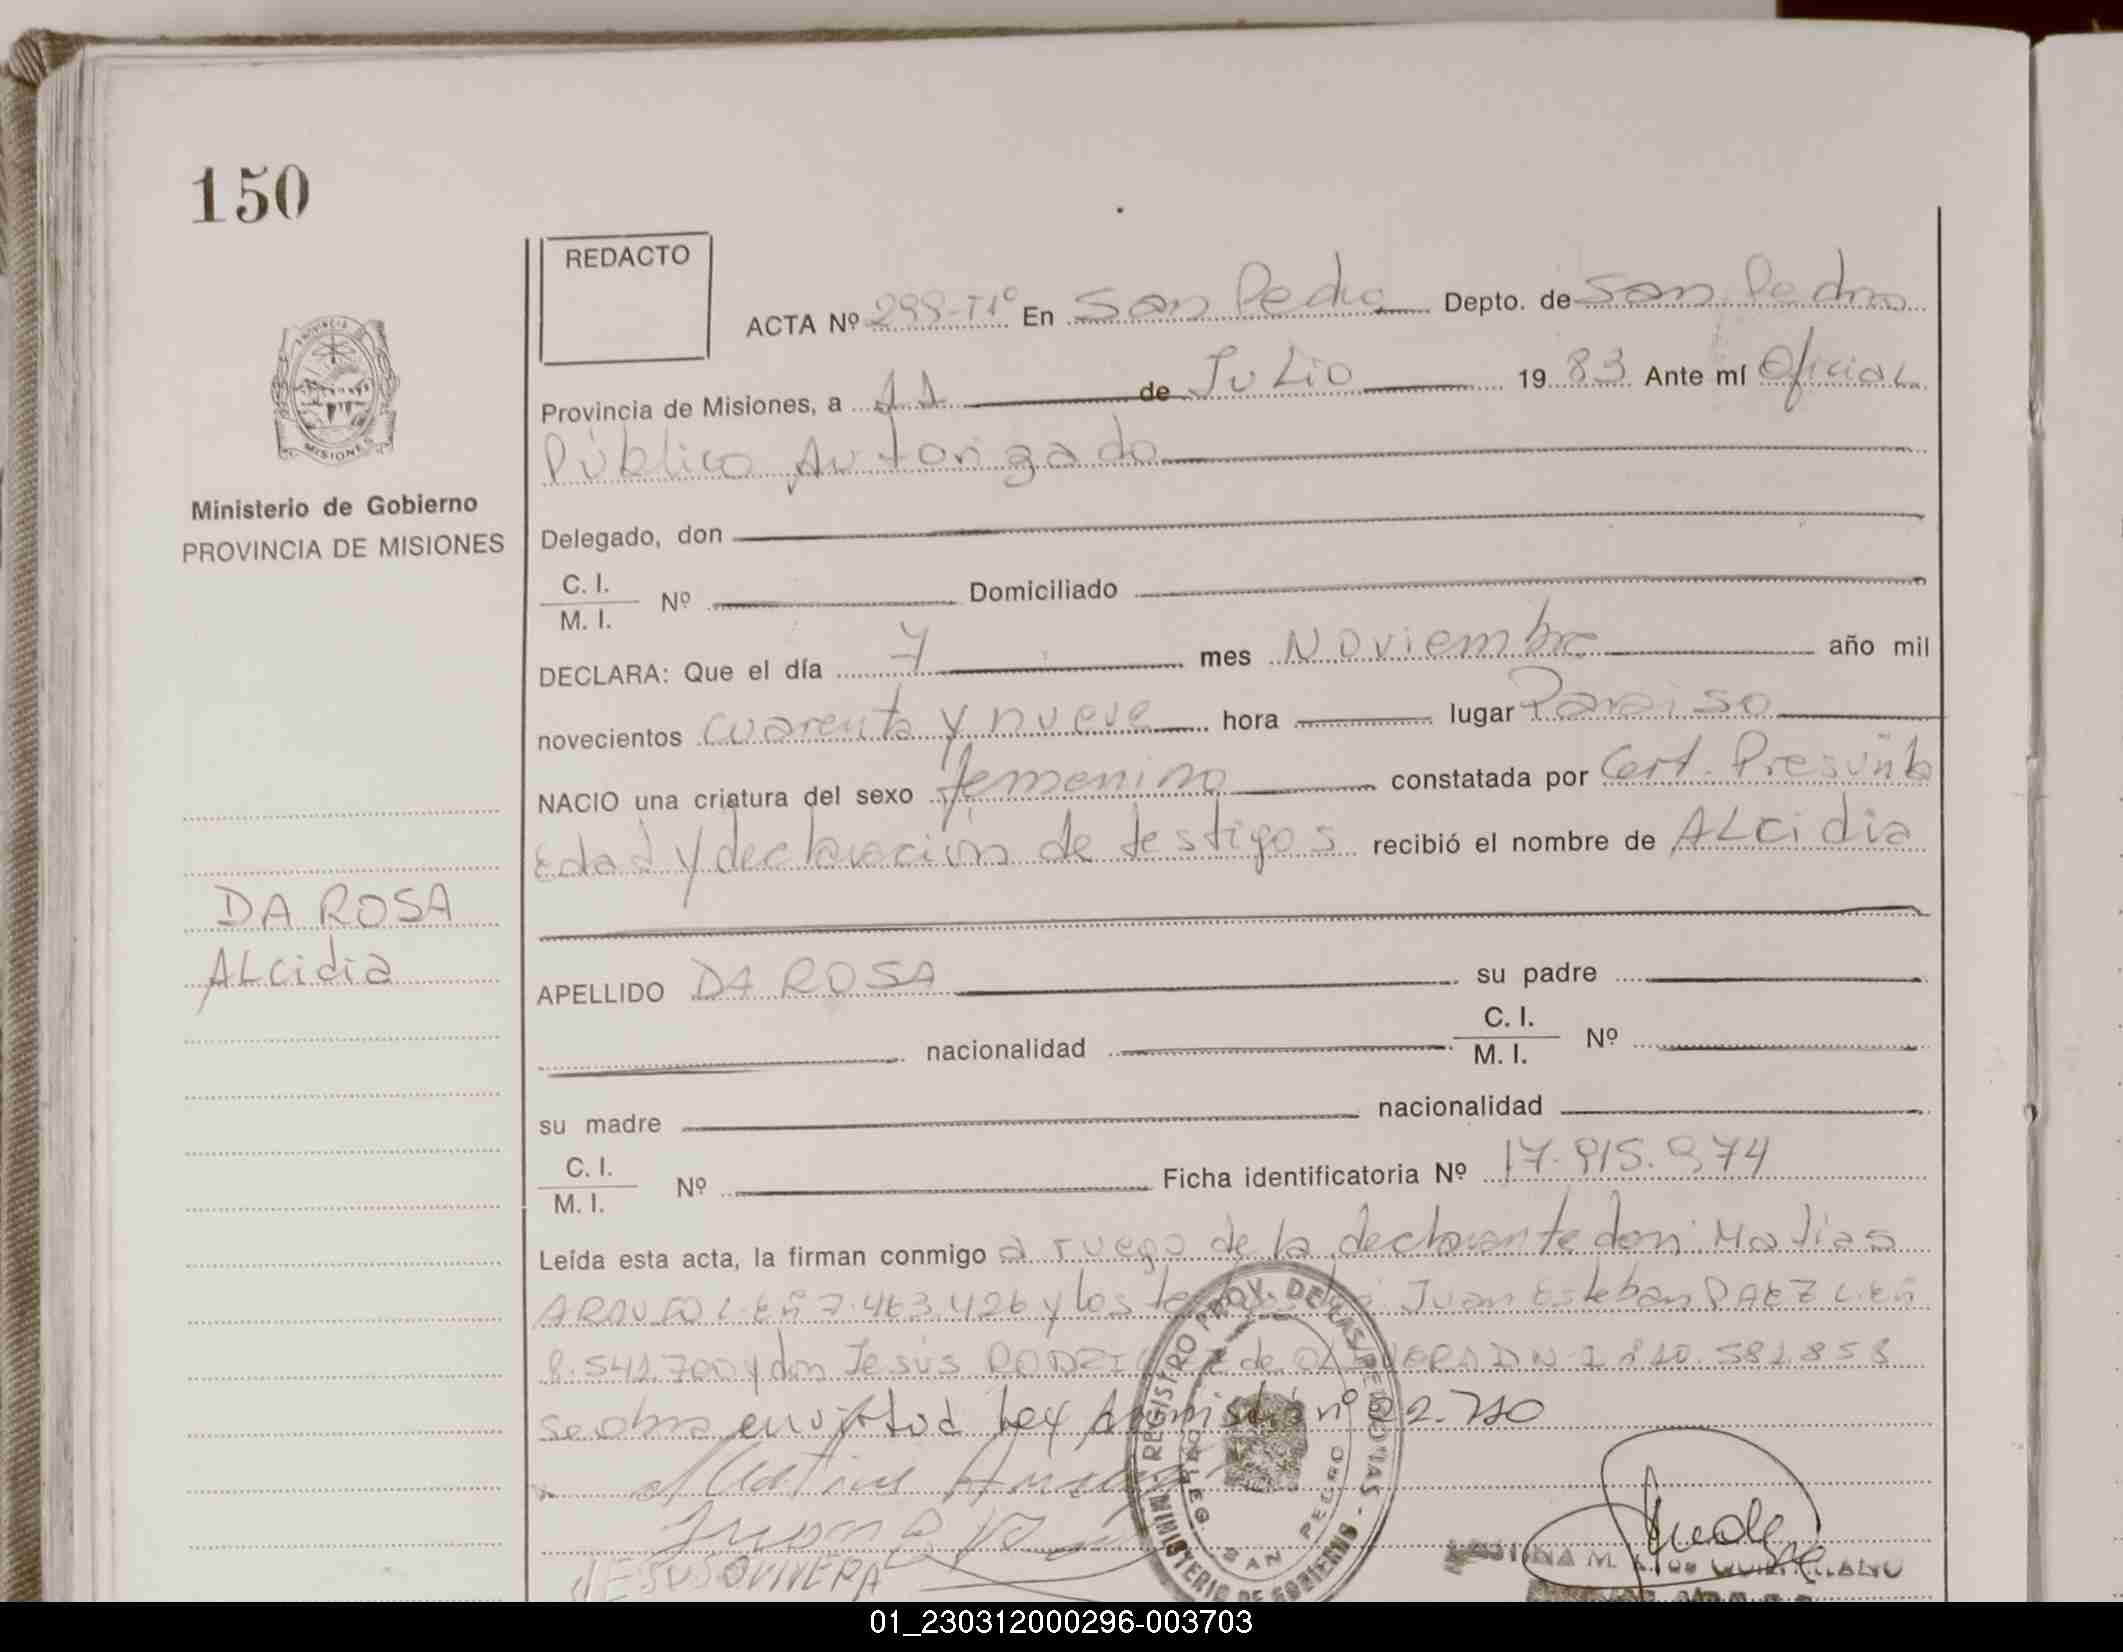 150
REDACTO
ACTA Nº 299-Tº En San Pedro Depto. de San Pedro
Provincia de Misiones, a 11 de Julio 1983 Ante mí Oficial
Público Autorizado
PROVINCIA DE
MISIONES
Ministerio de Gobierno
PROVINCIA DE MISIONES
Delegado, don
C. I.
M. I. Nº Domiciliado
DECLARA: Que el día 7 mes Noviembre año mil
novecientos cuarenta y nueve hora lugar Paraiso
NACIO una criatura del sexo femenino constatada por Cert. Presunta
Edad y declaración de testigos recibió el nombre de ALcidia
DA ROSA
ALcidia
APELLIDO DA ROSA su padre
nacionalidad C. I.
M. I. Nº
su madre nacionalidad
C. I.
M. I. Nº Ficha identificatoria Nº 17.915.974
Leída esta acta, la firman conmigo a ruego de la declarante don: Matias
ARAUJO L.E nº 7.463.426 y los Juan Esteban PAEZ L.E nº
8.541.700 y don Jesús de OLIVERA DNI
se obra en virtud Ley Amnistía nº 22.710
REGISTRO PROV. DE LAS PERSONAS
MINISTERIO DE GOBIERNO
SAN PEDRO
JESUS OLIVERA
01_230312000296-003703